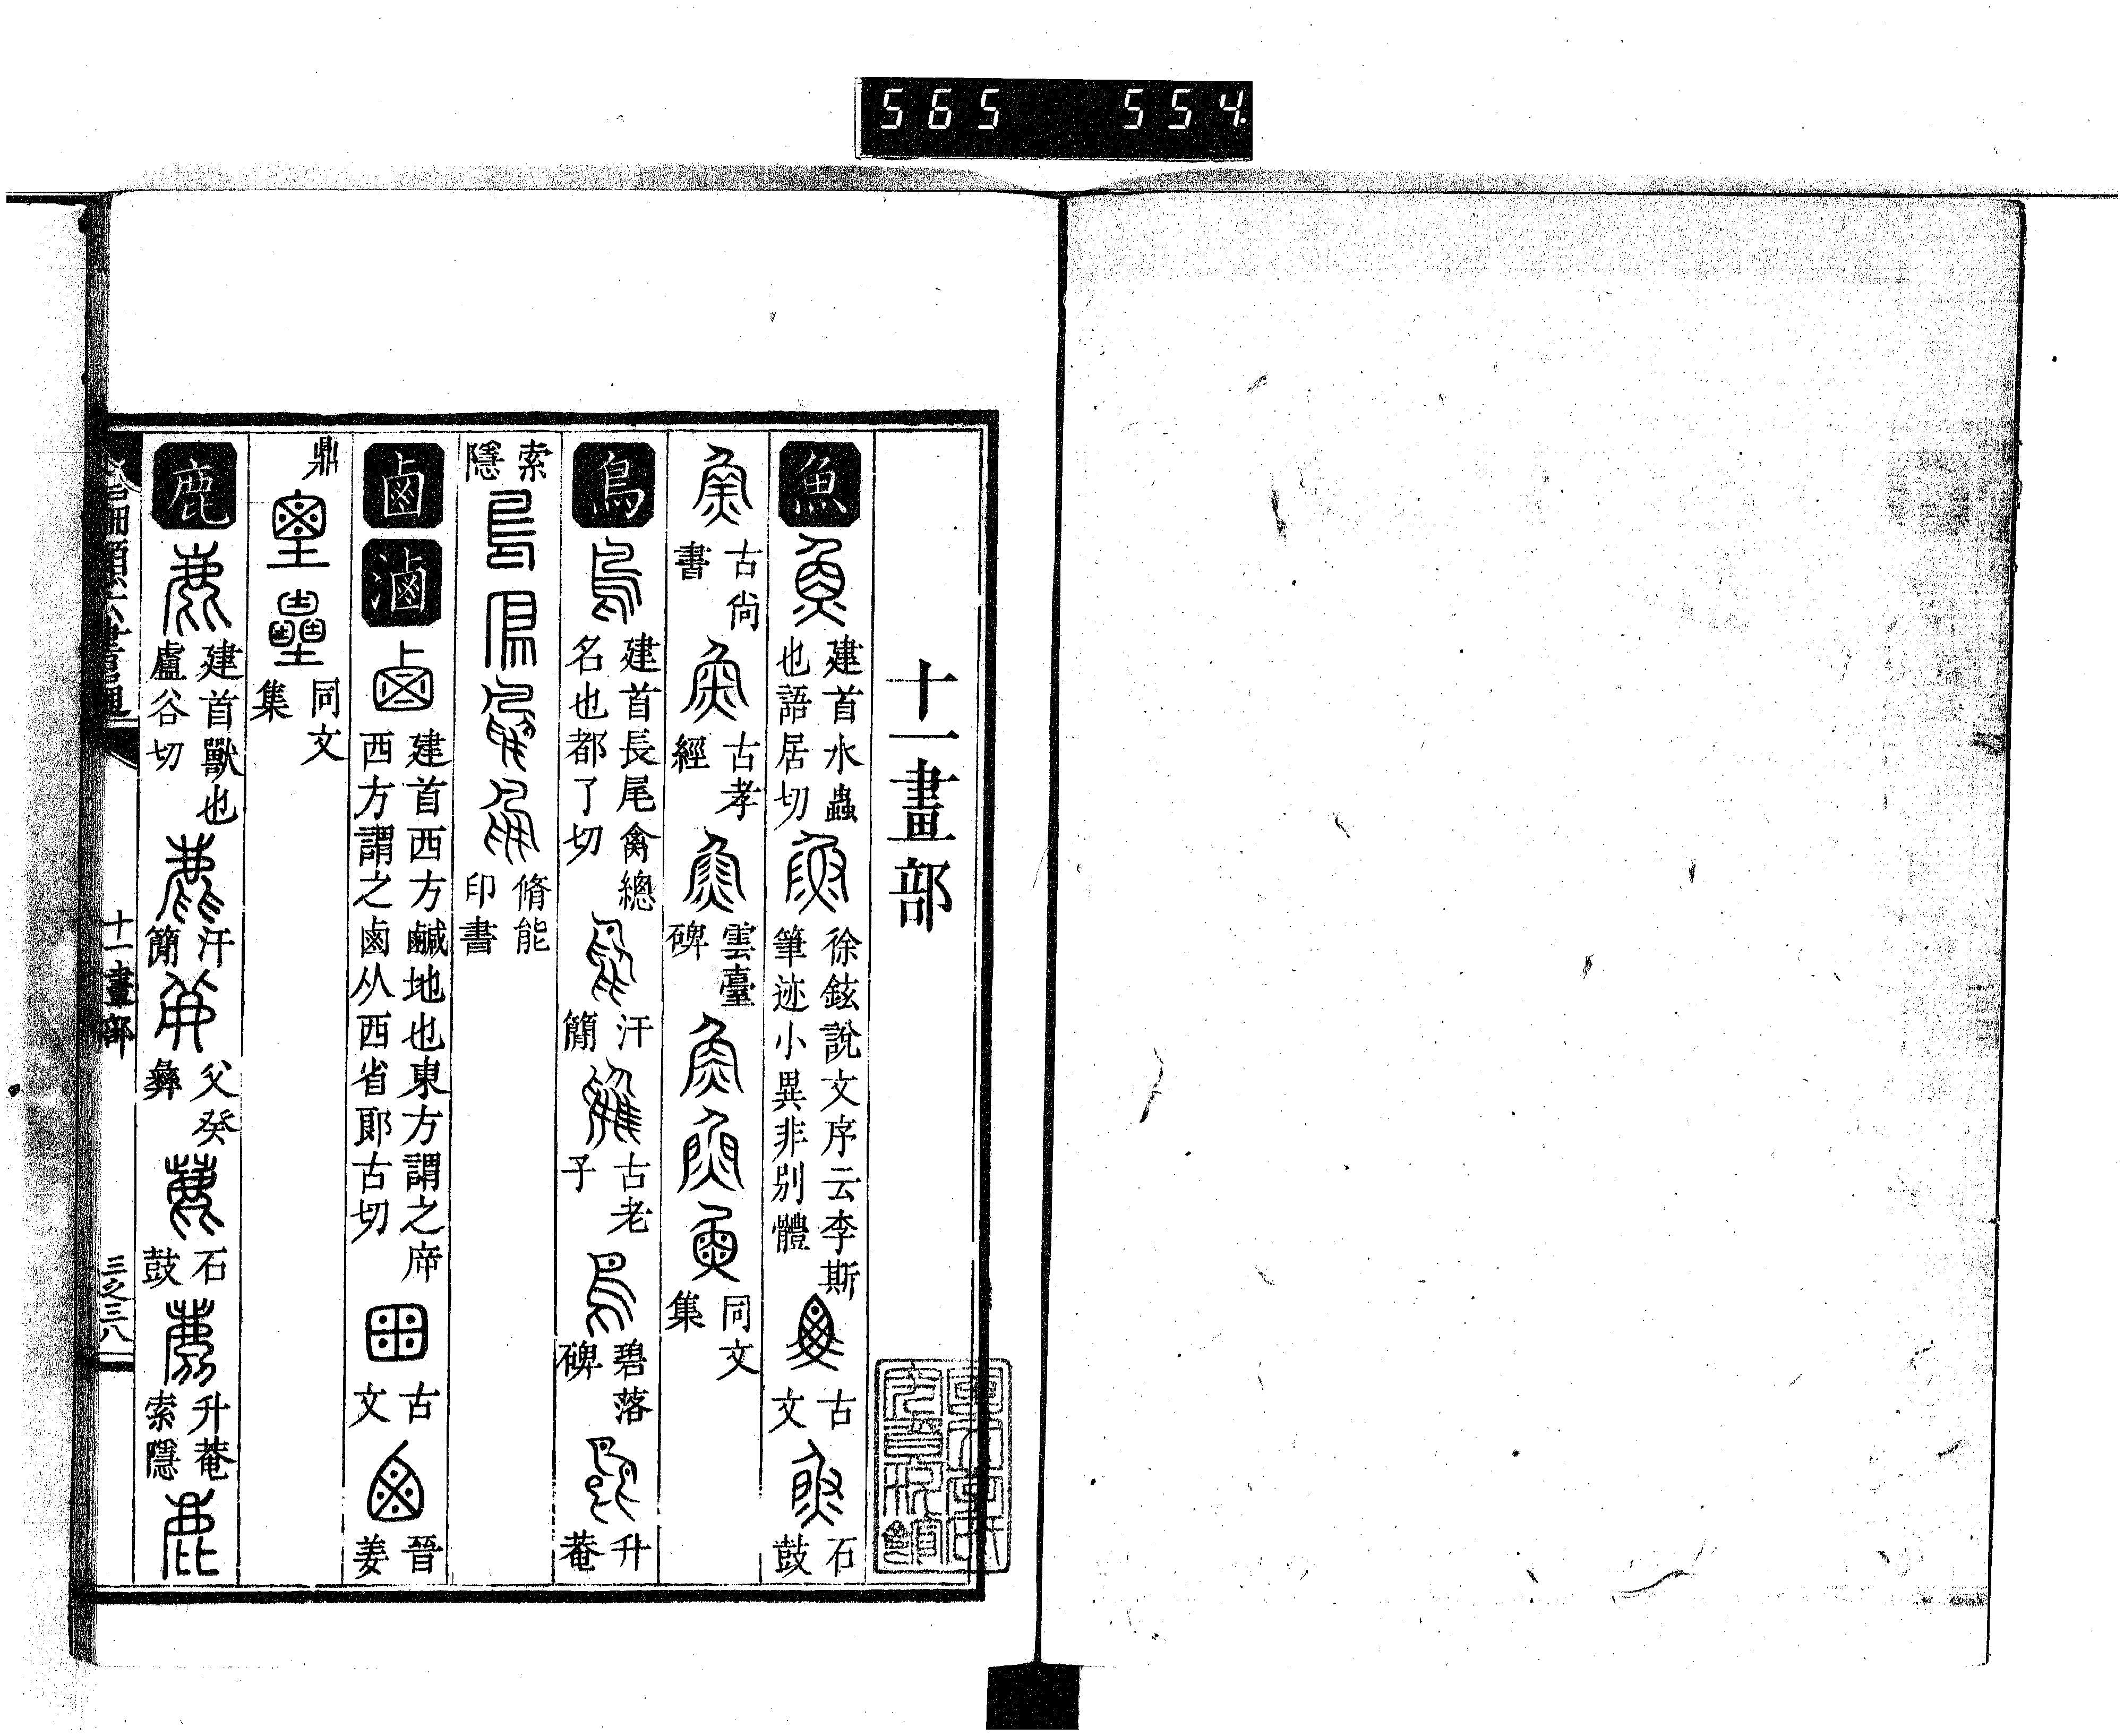 565 554.
十一畫部
魚 建首水蟲也語居切 徐鉉說文序云李斯筆迹小異非別體 古文 石鼓
古尚書 古孝經 雲臺碑 同文集
鳥 建首長尾禽總名也都了切 汗簡 古老子 碧落碑 升菴
索隱 脩能印書
鹵 滷 建首西方鹹地也東方謂之㡿西方謂之鹵从西省郞古切 古文 晉姜
鼎 同文集
鹿 建首獸也盧谷切 汗簡 父癸彝 石鼓 升菴索隱
十一畫部 三之三八